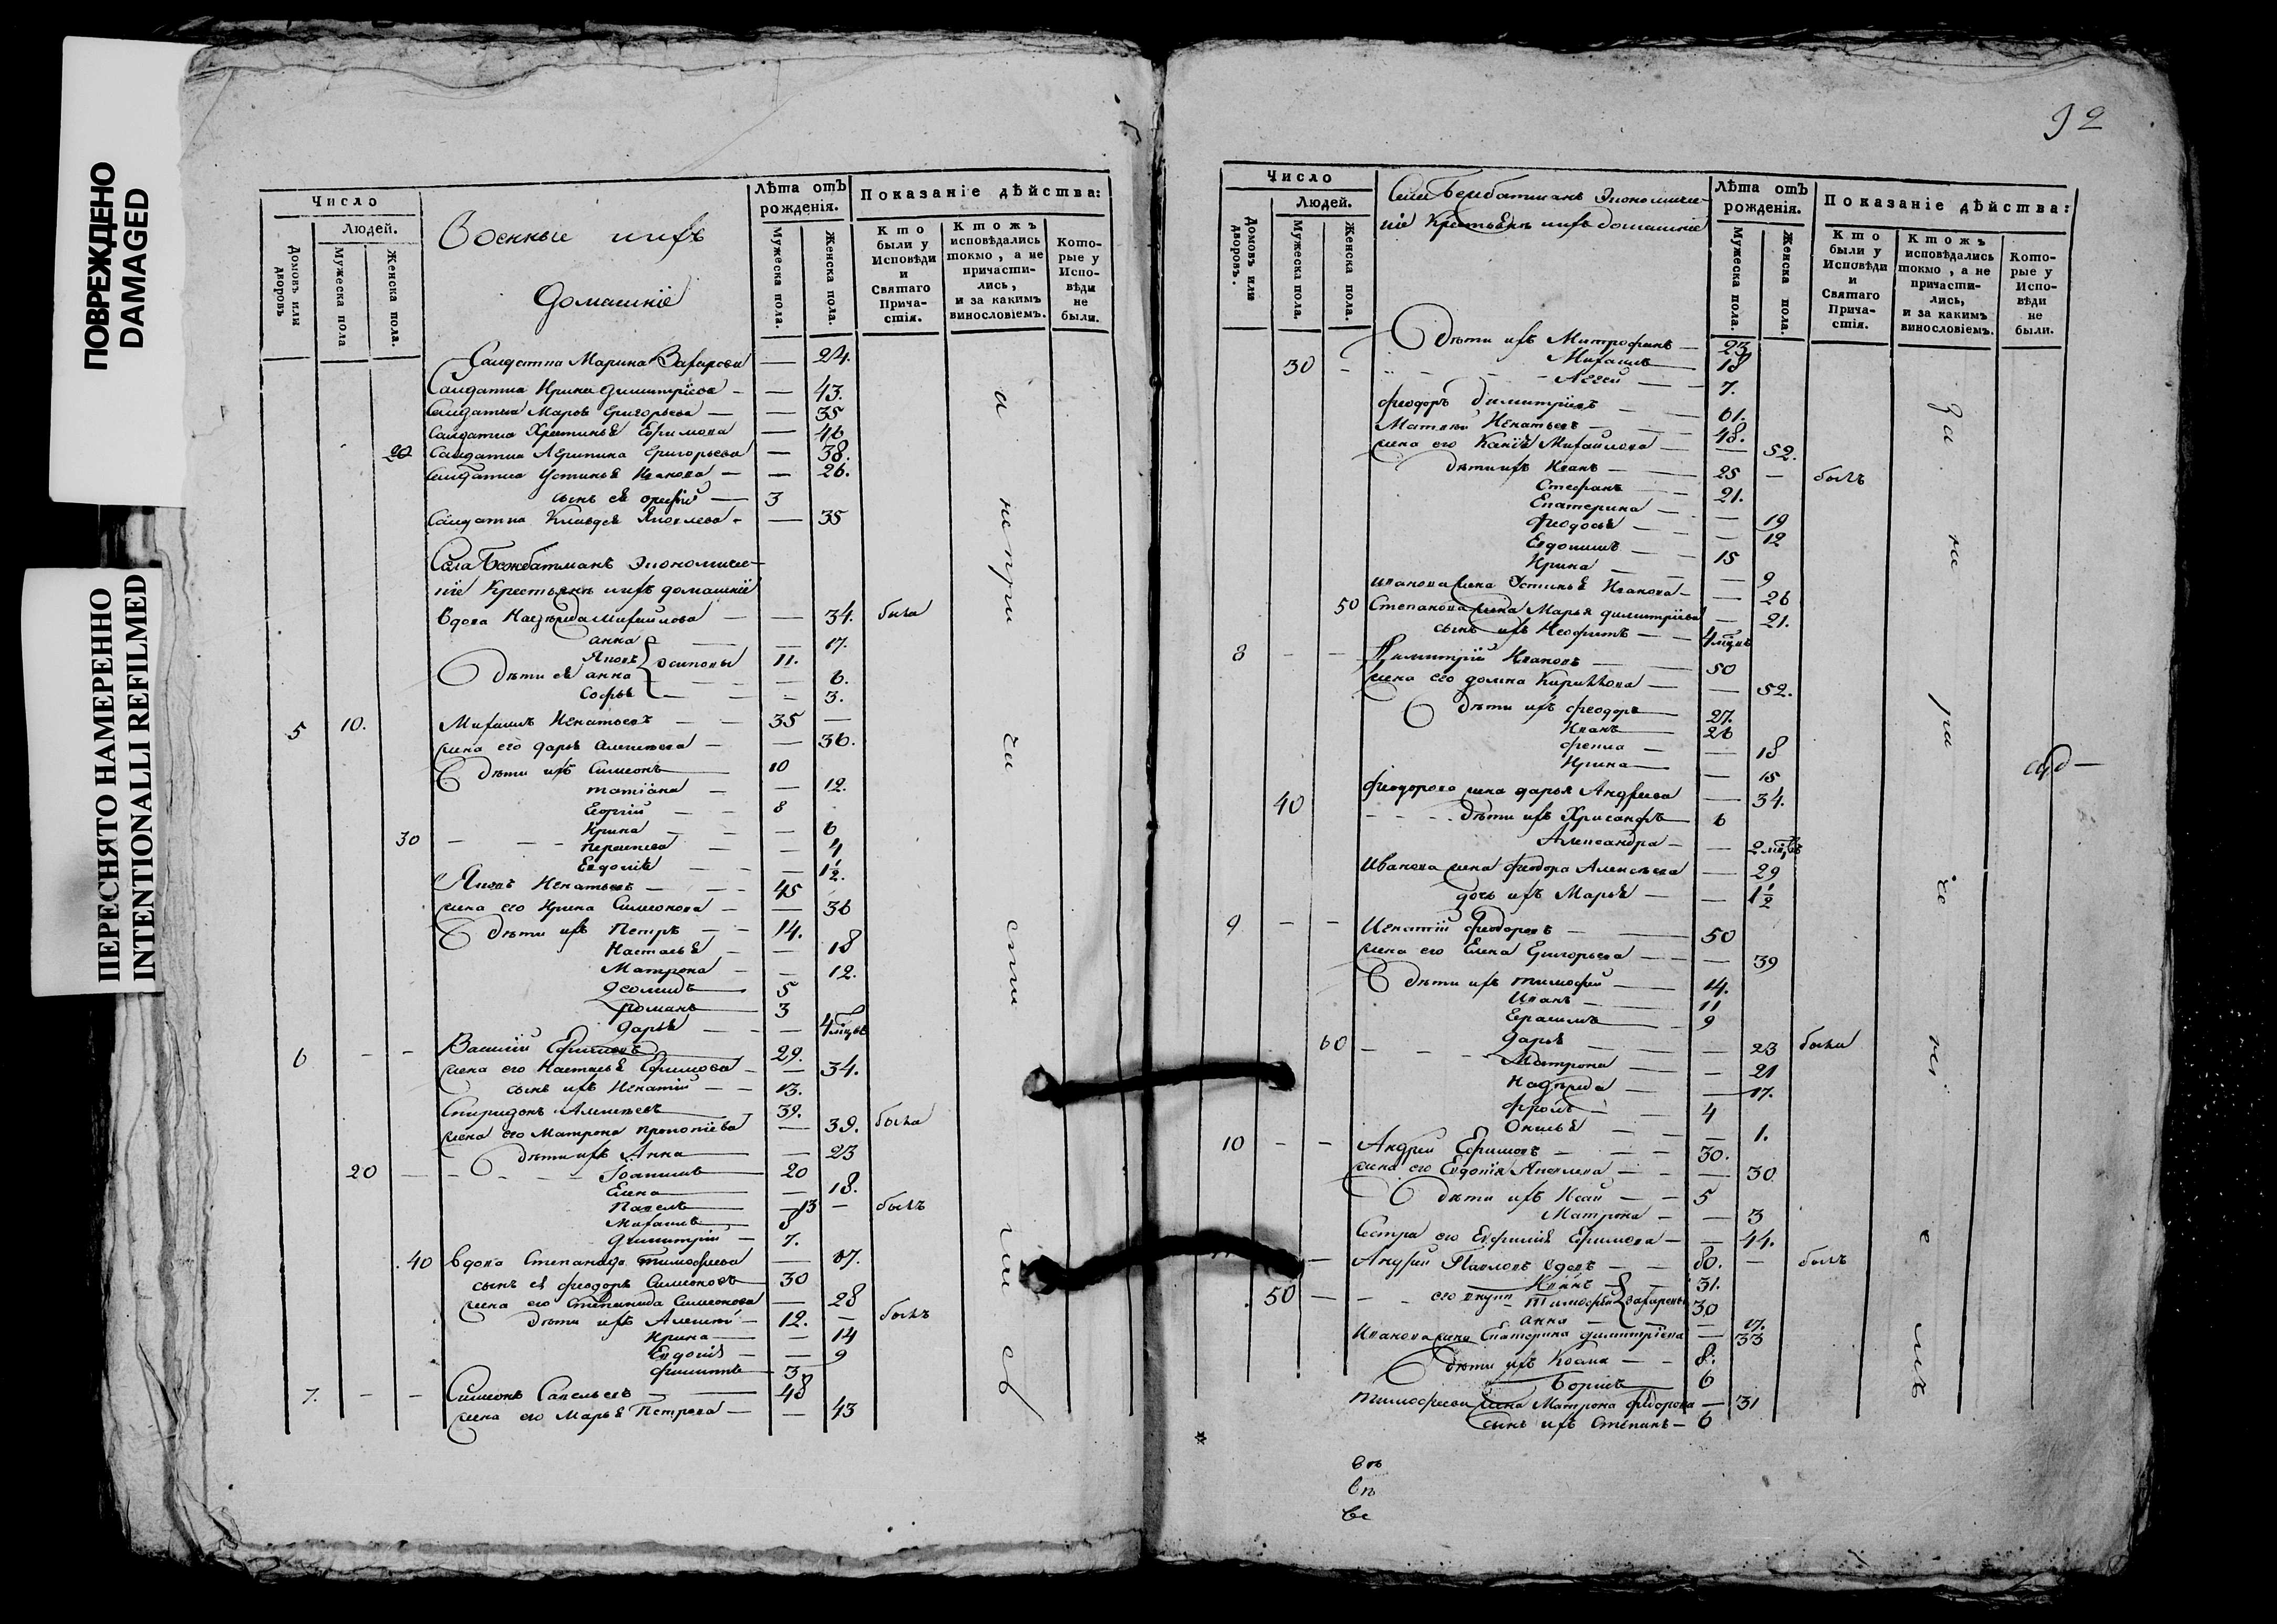 ПОВРЕЖДЕНО
DAMAGED
ПЕРЕСНЯТО НАМЕРЕННО
INTENTIONALLI REFILMED
Число
Людей.
Домовъ или дворовъ
Мужеска пола
Женска пола.
Военные и ихъ
Домашніе
Лѣта отъ рожденія.
Мужеска пола.
Женска пола.
Показаніе дѣйства:
Кто были у Исповѣди и Святаго Прича-стія.
Ктожъ исповѣдались токмо, а не причасти-лись, и за какимъ винословіемъ.
Кото-рые у Испо-вѣди не были.
Салдатка Марина Захарова — 24.
Салдатка Ирина Димитріева — — 43.
Салдатка Марѳа Григорьева — — 35
Салдатка Христинья Ефимова — 46
20 Салдатка Агрипина Григорьева — 38.
Салдатка Устинья Иванова — — 26.
сынъ ея — 3
Салдатка Клавдея Яковлева — 35
Села Бежбатманъ Экономиче-
скіе Крестьяне и ихъ домашніе
Вдова Михайлова — — 34. была
анна — — 17.
Яковъ Осиповы 11.
Дѣти ея анна — — 6.
Софья — — 3.
5 10. Михаилъ Игнатьевъ — — 35 —
жена его дарья алексѣева — — 36.
дѣти ихъ Симеонъ — 10
татіана — — 12.
Георгій — — 8
30 — — Ирина — — 6
— 4
Евдокія — — 1½.
Яковъ Игнатьевъ — — 45
жена его Ирина Симеонова — — 36
дѣти ихъ Петръ — — 14.
Настасья — — 18
Матрона — — 12.
— 5
Романъ — 3
дарья — — 4 мѣцы
6 — — Василій Ефимовъ — 29.
жена его Настасья Ефимова — — 34.
сынъ ихъ Игнатій — — 13.
Спиридонъ Алексѣевъ — 39.
жена его Матрона прокопіева — 39. была
дѣти ихъ Анна — — 23
20 — — Іоакимъ — 20
Елена — — 18.
Павелъ — 13 — былъ
Михаилъ — 8
димитрій — 7.
40 вдова Степанида тимофеева — 67.
сынъ ея феодоръ Симеоновъ — 30
жена его Степанида Симеонова — 28
дѣти ихъ Алексѣй — 12. — былъ
Ирина — — 14
Евдокія — — 9
филиппъ — 3
7. — — Симеонъ Савельевъ — 48
жена его Марья Петрова — — 43
а не прича стили съ
92
Число
Людей.
Домовъ или дворовъ.
Мужеска пола.
Женска пола.
Села Бежбатманъ Экономиче-
скіе Крестьяне и ихъ домашніе
Лѣта отъ рожденія.
Мужеска пола.
Женска пола.
Показаніе дѣйства:
Кто были у Исповѣди и Святаго Прича-стія.
Ктожъ исповѣдались токмо, а не причасти-лись, и за какимъ винословіемъ.
Кото-рые у Испо-вѣди не были.
Дѣти ихъ Митрофанъ — 23
30 — Михаилъ — 18
Аггей — — 7.
феодоръ димитріевъ — — 61.
Матвей Игнатьевъ — — 48.
жена его Михайлова — — 52.
дѣти ихъ Иванъ — — 25 — былъ
Стефанъ — — 21.
Екатерина — — 19
феодосья — — 12
Евдокимъ — — 15
Ирина — — 9
иванова жена Устинья Иванова — — 26
50 Степанова жена Марья димитріева — 21.
сынъ ихъ Неофитъ — — 4 мѣцы
8 — — Димитрій Ивановъ — — 50
жена его домна Кирилова — — 52.
дѣти ихъ феодоръ — 27.
Иванъ — 26
фекла — — 18
Ирина — — 15
феодорова жена дарья Андреева — 34.
40 — — дѣти ихъ Хрисанфъ — 6
Александра — — 2 мѣцы
Иванова жена феодора Алексѣева — 29
дочь ихъ Марья — — 1½
9 — — Игнатій феодоровъ — — 50
жена его Елена Григорьева — — 39
дѣти ихъ тимофей — 14.
Иванъ — 11
Герасимъ — 9
60 — — дарья — — 23 была
Матрона — — 21
— 17.
фролъ — — 4
— 1.
10 — — Андрей Ефимовъ — — 30.
жена его Евдокія Яковлева — — 30
дѣти ихъ Исай — — 5
Матрона — — 3
Сестра его Евфимія Ефимова — — 44.
— Андрей Павловъ вдовъ — — 80. — былъ
Иванъ — 31.
50 — — его внуки Тимофей Захаровы 30
анна — — 17.
Иванова жена Екатерина димитріева — 33
дѣти ихъ Козма — — 8.
Борисъ — 6
тимофеева жена Матрона феодорова — 31
сынъ ихъ Степанъ — 6